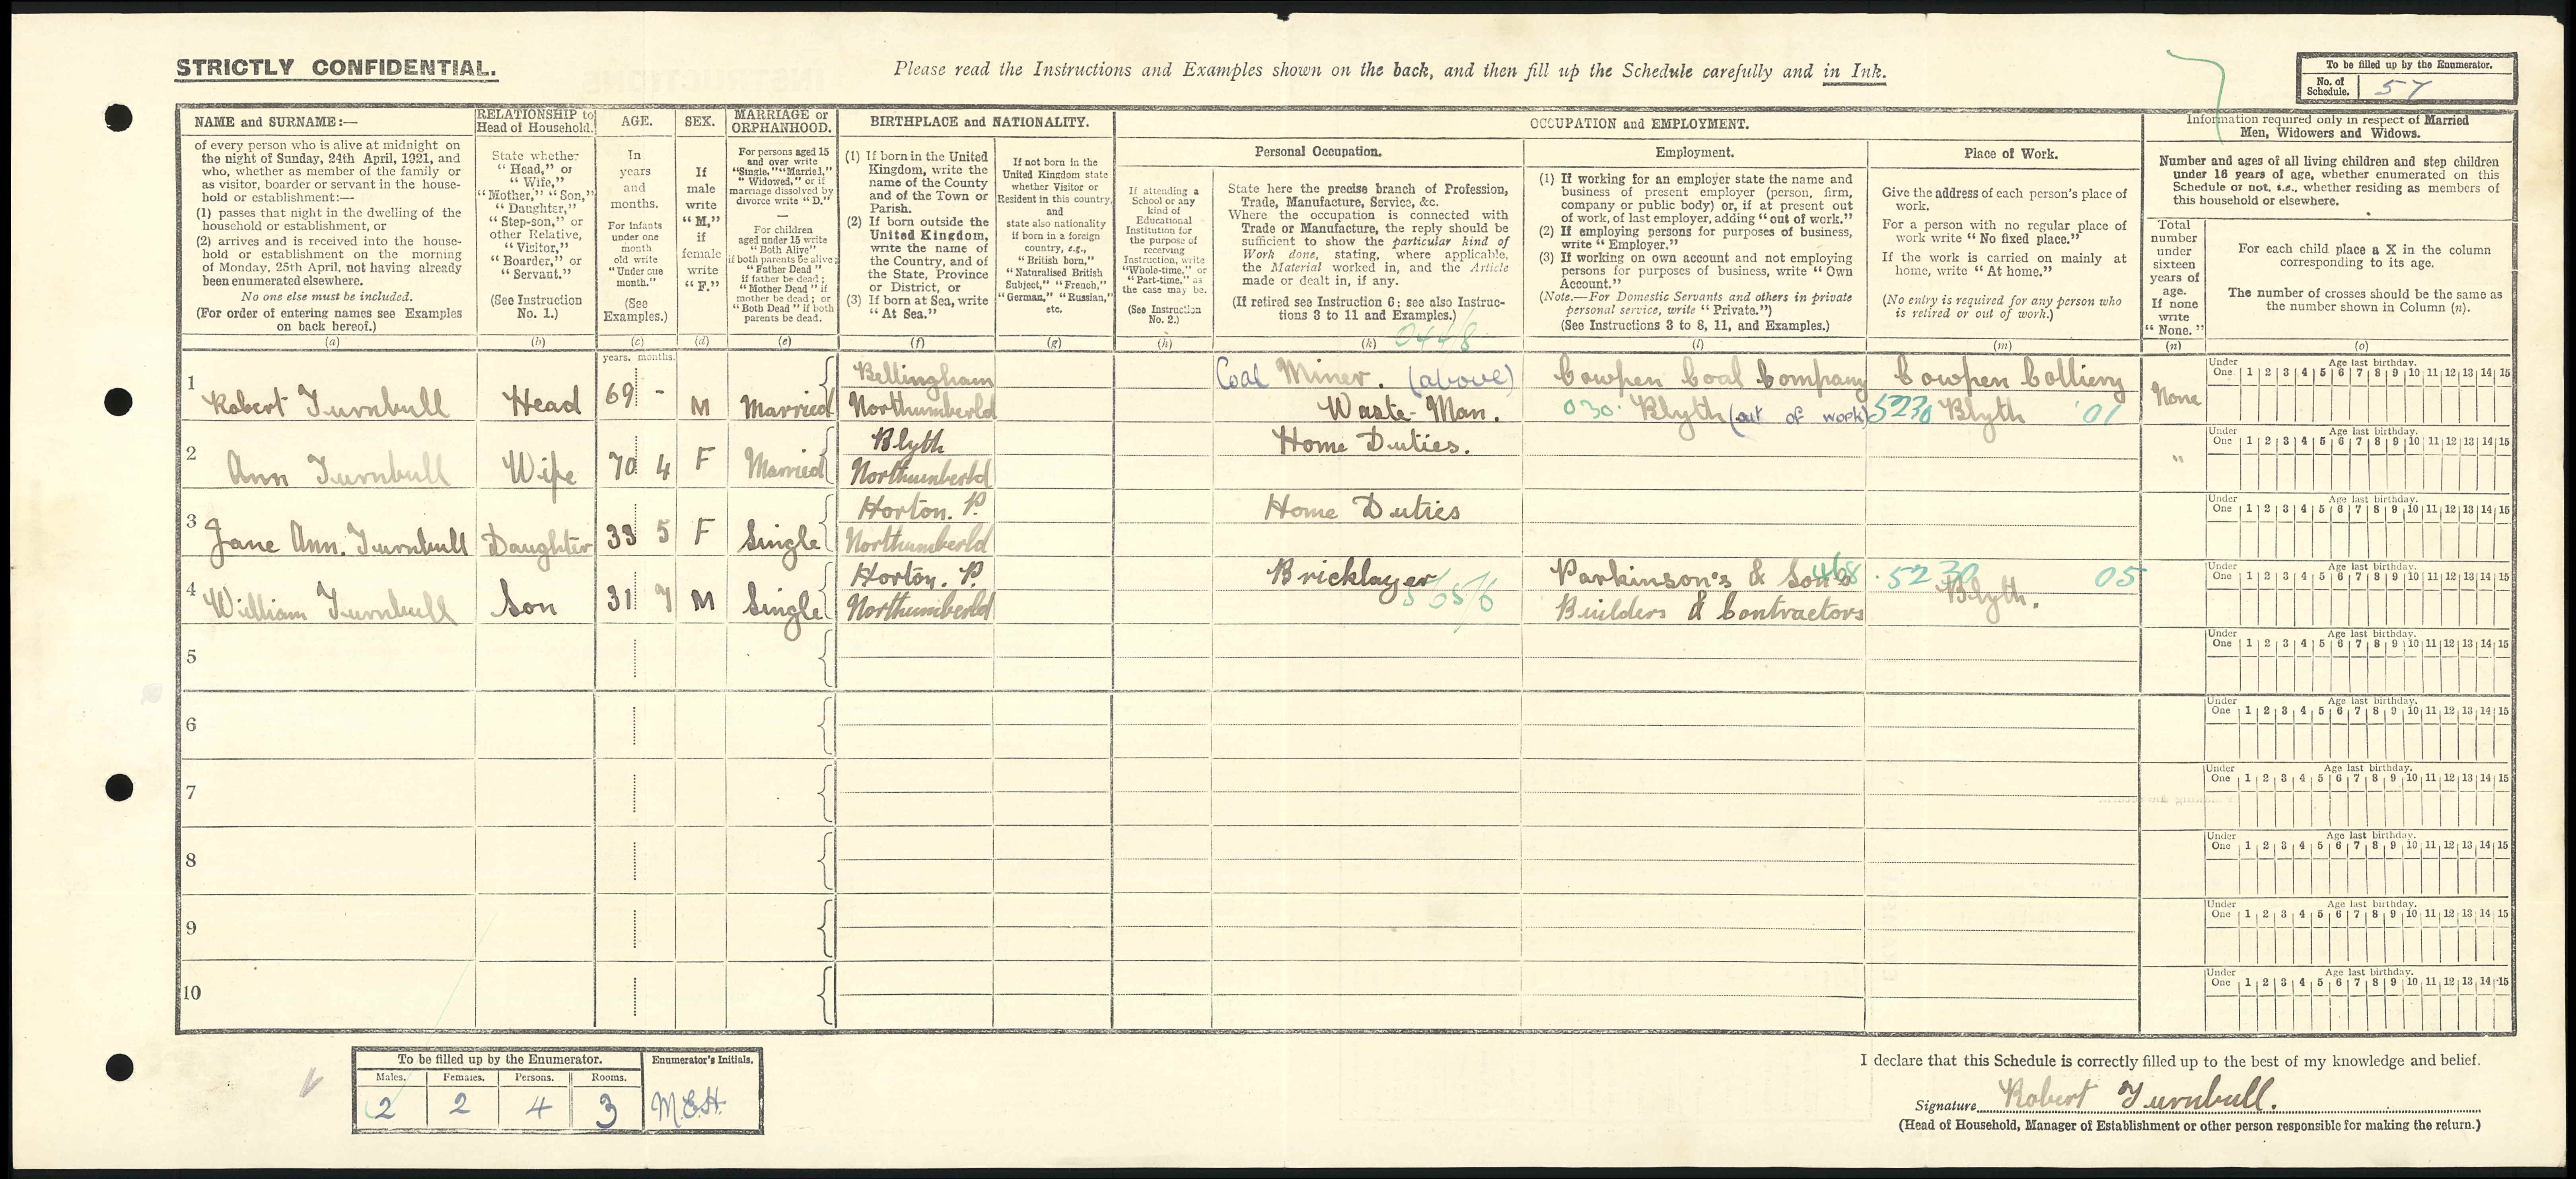 STRICTLY CONFIDENTIAL.
Please read the Instructions and Examples shown on the back, and then fill up the Schedule carefully and in Ink.
To be filled up by the Enumerator.
No. of Schedule. 57
NAME and SURNAME:—
of every person who is alive at midnight on
the night of Sunday, 24th April, 1921, and
who, whether as member of the family or
as visitor, boarder or servant in the house-
hold or establishment:—
(1) passes that night in the dwelling of the
household or establishment, or
(2) arrives and is received into the house-
hold or establishment on the morning
of Monday, 25th April, not having already
been enumerated elsewhere.
No one else must be included.
(For order of entering names see Examples
on back hereof.)
(a)
RELATIONSHIP to
Head of Household.
State whether
"Head," or
"Wife,"
"Mother," "Son,"
"Daughter,"
"Step-son," or
other Relative,
"Visitor,"
"Boarder," or
"Servant."
(See Instruction
No. 1.)
(b)
AGE.
In
years
and
months.
For Infants
under one
month
old write
"Under one
month."
(See
Examples.)
(c)
SEX.
If
male
write
"M,"
if
female
write
"F."
(d)
MARRIAGE or
ORPHANHOOD.
For persons aged 15
and over write
"Single," "Married,"
"Widowed," or if
marriage dissolved by
divorce write "D."
—
For children
aged under 15 write
"Both Alive"
if both parents be alive;
"Father Dead"
if father be dead;
"Mother Dead" if
mother be dead; or
"Both Dead" if both
parents be dead.
(e)
BIRTHPLACE and NATIONALITY.
(1) If born in the United
Kingdom, write the
name of the County
and of the Town or
Parish.
(2) If born outside the
United Kingdom,
write the name of
the Country, and of
the State, Province
or District, or
(3) If born at Sea, write
"At Sea."
(f)
If not born in the
United Kingdom state
whether Visitor or
Resident in this country,
and
state also nationality
if born in a foreign
country, e.g.,
"British born,"
"Naturalised British
Subject," "French,"
"German," "Russian,"
etc.
(g)
OCCUPATION and EMPLOYMENT.
Personal Occupation.
If attending a
School or any
kind of
Educational
Institution for
the purpose of
receiving
Instruction, write
"Whole-time," or
"Part-time," as
the case may be.
(See Instruction
No. 2.)
(h)
State here the precise branch of Profession,
Trade, Manufacture, Service, &c.
Where the occupation is connected with
Trade or Manufacture, the reply should be
sufficient to show the particular kind of
Work done, stating, where applicable,
the Material worked in, and the Article
made or dealt in, if any.
(If retired see Instruction 6; see also Instruc-
tions 3 to 11 and Examples.)
(k) 0448
Employment.
(1) If working for an employer state the name and
business of present employer (person, firm,
company or public body) or, if at present out
of work, of last employer, adding "out of work."
(2) If employing persons for purposes of business,
write "Employer."
(3) If working on own account and not employing
persons for purposes of business, write "Own
Account."
(Note.—For Domestic Servants and others in private
personal service, write "Private.")
(See Instructions 3 to 8, 11, and Examples.)
(l)
Place of Work.
Give the address of each person's place of
work.
For a person with no regular place of
work write "No fixed place."
If the work is carried on mainly at
home, write "At home."
(No entry is required for any person who
is retired or out of work.)
(m)
Information required only in respect of Married
Men, Widowers and Widows.
Number and ages of all living children and step children
under 16 years of age, whether enumerated on this
Schedule or not, i.e., whether residing as members of
this household or elsewhere.
Total
number
under
sixteen
years of
age.
If none
write
"None."
(n)
For each child place a X in the column
corresponding to its age.
The number of crosses should be the same as
the number shown in Column (n).
(o)
years. months.
1 Robert Turnbull Head 69 - M Married Bellingham Northumberld Coal Miner. (above) Waste-Man. Cowpen Coal Company 030. Blyth (out of work) Cowpen Colliery 5230 Blyth '01 None
Under One Age last birthday. 1 2 3 4 5 6 7 8 9 10 11 12 13 14 15
2 Ann Turnbull Wife 70 4 F Married Blyth Northumberld Home Duties. "
Under One Age last birthday. 1 2 3 4 5 6 7 8 9 10 11 12 13 14 15
3 Jane Ann. Turnbull Daughter 33 5 F Single Horton. P. Northumberld Home Duties
Under One Age last birthday. 1 2 3 4 5 6 7 8 9 10 11 12 13 14 15
4 William Turnbull Son 31 7 M Single Horton. P. Northumberld Bricklayer 565/6 Parkinson's & Son's 468 Builders & Contractors 5230 Blyth. 05
Under One Age last birthday. 1 2 3 4 5 6 7 8 9 10 11 12 13 14 15
5
Under One Age last birthday. 1 2 3 4 5 6 7 8 9 10 11 12 13 14 15
6
Under One Age last birthday. 1 2 3 4 5 6 7 8 9 10 11 12 13 14 15
7
Under One Age last birthday. 1 2 3 4 5 6 7 8 9 10 11 12 13 14 15
8
Under One Age last birthday. 1 2 3 4 5 6 7 8 9 10 11 12 13 14 15
9
Under One Age last birthday. 1 2 3 4 5 6 7 8 9 10 11 12 13 14 15
10
Under One Age last birthday. 1 2 3 4 5 6 7 8 9 10 11 12 13 14 15
To be filled up by the Enumerator. Enumerator's Initials.
Males. Females. Persons. Rooms.
2 2 4 3 M.E.H.
I declare that this Schedule is correctly filled up to the best of my knowledge and belief.
Signature Robert Turnbull.
(Head of Household, Manager of Establishment or other person responsible for making the return.)